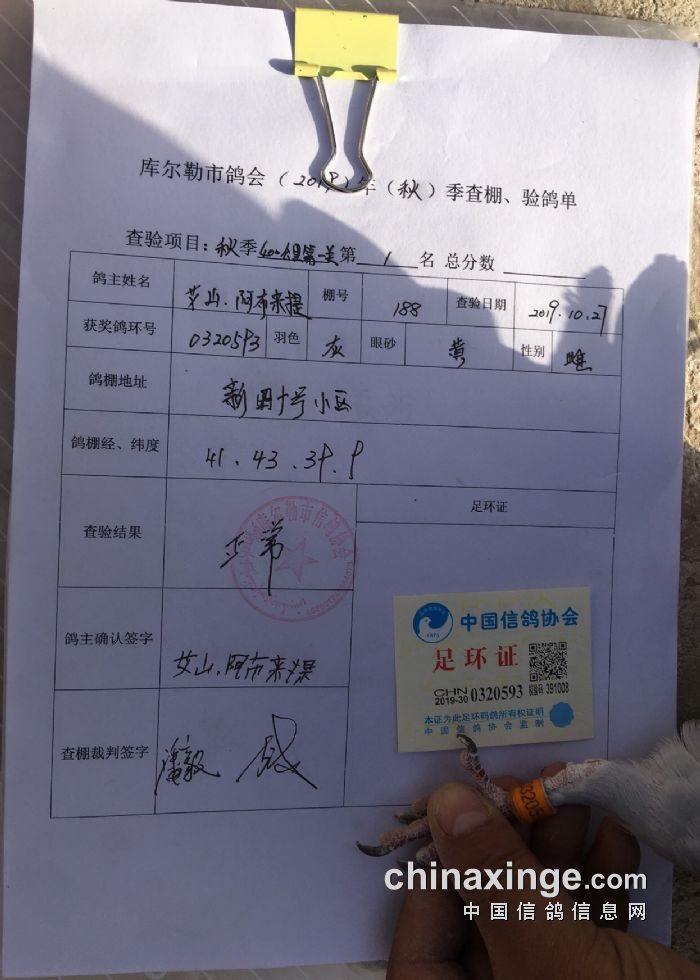 库尔勒市鸽会（2019）年（秋）季查棚、验鸽单
查验项目：秋季400公里第一关第 1 名 总分数
鸽主姓名 艾山.阿布来提 棚号 188 查验日期 2019.10.27
获奖鸽环号 0320593 羽色 灰 眼砂 黄 性别 雌
鸽棚地址 新田十号小区
鸽棚经、纬度 41.43.39.9
查验结果 正常
足环证
库尔勒市信鸽协会
鸽主确认签字 艾山.阿布来提
查棚裁判签字
中国信鸽协会
足环证
CHN
2019-30 0320593 校验码 391008
本证为此足环码鸽所有权证明
中国信鸽协会监制
3205
chinaxinge.com
中国信鸽信息网